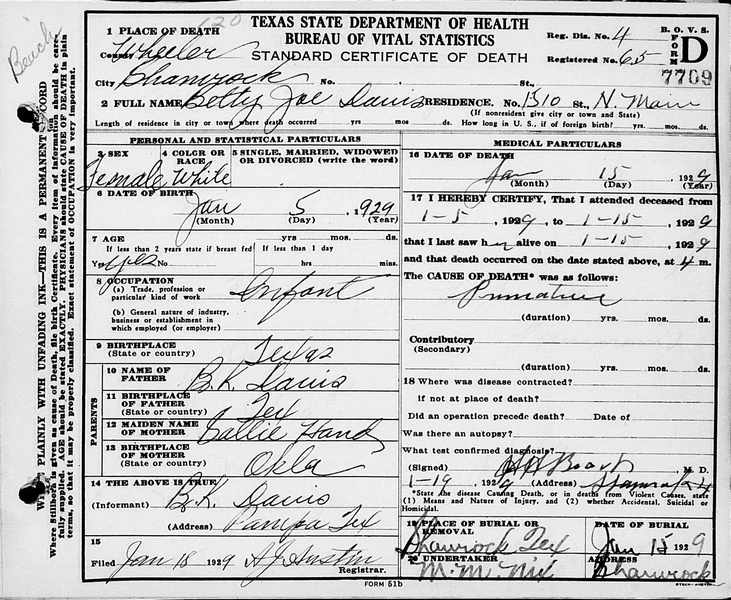 120
TEXAS STATE DEPARTMENT OF HEALTH
BUREAU OF VITAL STATISTICS
STANDARD CERTIFICATE OF DEATH
Reg. Dis. No. 4
B. O. V. S.
FORM D
Registered No. 65
7709
1 PLACE OF DEATH
County Wheeler
City Shamrock No. St.,
2 FULL NAME Betty Joe Davis RESIDENCE. No. 1310 St., N. Main
(If nonresident give city or town and State)
Length of residence in city or town where death occurred yrs. mos. ds. How long in U. S., if of foreign birth? yrs. mos. ds.
PERSONAL AND STATISTICAL PARTICULARS
3 SEX 4 COLOR OR RACE 5 SINGLE, MARRIED, WIDOWED OR DIVORCED (write the word)
Female White
6 DATE OF BIRTH
Jan 5, 929
(Month) (Day) (Year)
7 AGE yrs. mos. ds.
If less than 2 years state if breast fed If less than 1 day
Yes yes No hrs mins.
8 OCCUPATION
(a) Trade, profession or particular kind of work Infant
(b) General nature of industry, business or establishment in which employed (or employer)
9 BIRTHPLACE
(State or country) Texas
PARENTS
10 NAME OF FATHER B. K. Davis
11 BIRTHPLACE OF FATHER
(State or country) Tex
12 MAIDEN NAME OF MOTHER Hand
13 BIRTHPLACE OF MOTHER
(State or country) Okla
14 THE ABOVE IS TRUE
(Informant) B. K. Davis
(Address) Pampa Tex
15
Filed Jan 18 1929 A J Austin
Registrar.
MEDICAL PARTICULARS
16 DATE OF DEATH
Jan 15, 1929
(Month) (Day) (Year)
17 I HEREBY CERTIFY, That I attended deceased from
1-5, 1929, to 1-15, 1929
that I last saw her alive on 1-15, 1929
and that death occurred on the date stated above, at 4 m.
The CAUSE OF DEATH* was as follows:
Premature
(duration) yrs. mos. ds.
Contributory
(Secondary)
(duration) yrs. mos. ds.
18 Where was disease contracted?
If not at place of death?
Did an operation precede death? Date of
Was there an autopsy?
What test confirmed diagnosis?
(Signed) M. D.
1-19, 1929 (Address) Shamrock
*State the disease Causing Death, or in deaths from Violent Causes, state (1) Means and Nature of Injury, and (2) whether Accidental, Suicidal or Homicidal.
19 PLACE OF BURIAL OR REMOVAL DATE OF BURIAL
Shamrock Tex Jan 15 1929
20 UNDERTAKER ADDRESS
M. M. Nix Shamrock
FORM 51b
WRITE PLAINLY WITH UNFADING INK—THIS IS A PERMANENT RECORD
Where Stillborn is given as cause of Death, file birth Certificate. Every item of information should be carefully supplied. AGE should be stated EXACTLY. PHYSICIANS should state CAUSE OF DEATH in plain terms, so that it may be properly classified. Exact statement of OCCUPATION is very important.